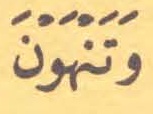 وَتَنْهَوْنَ